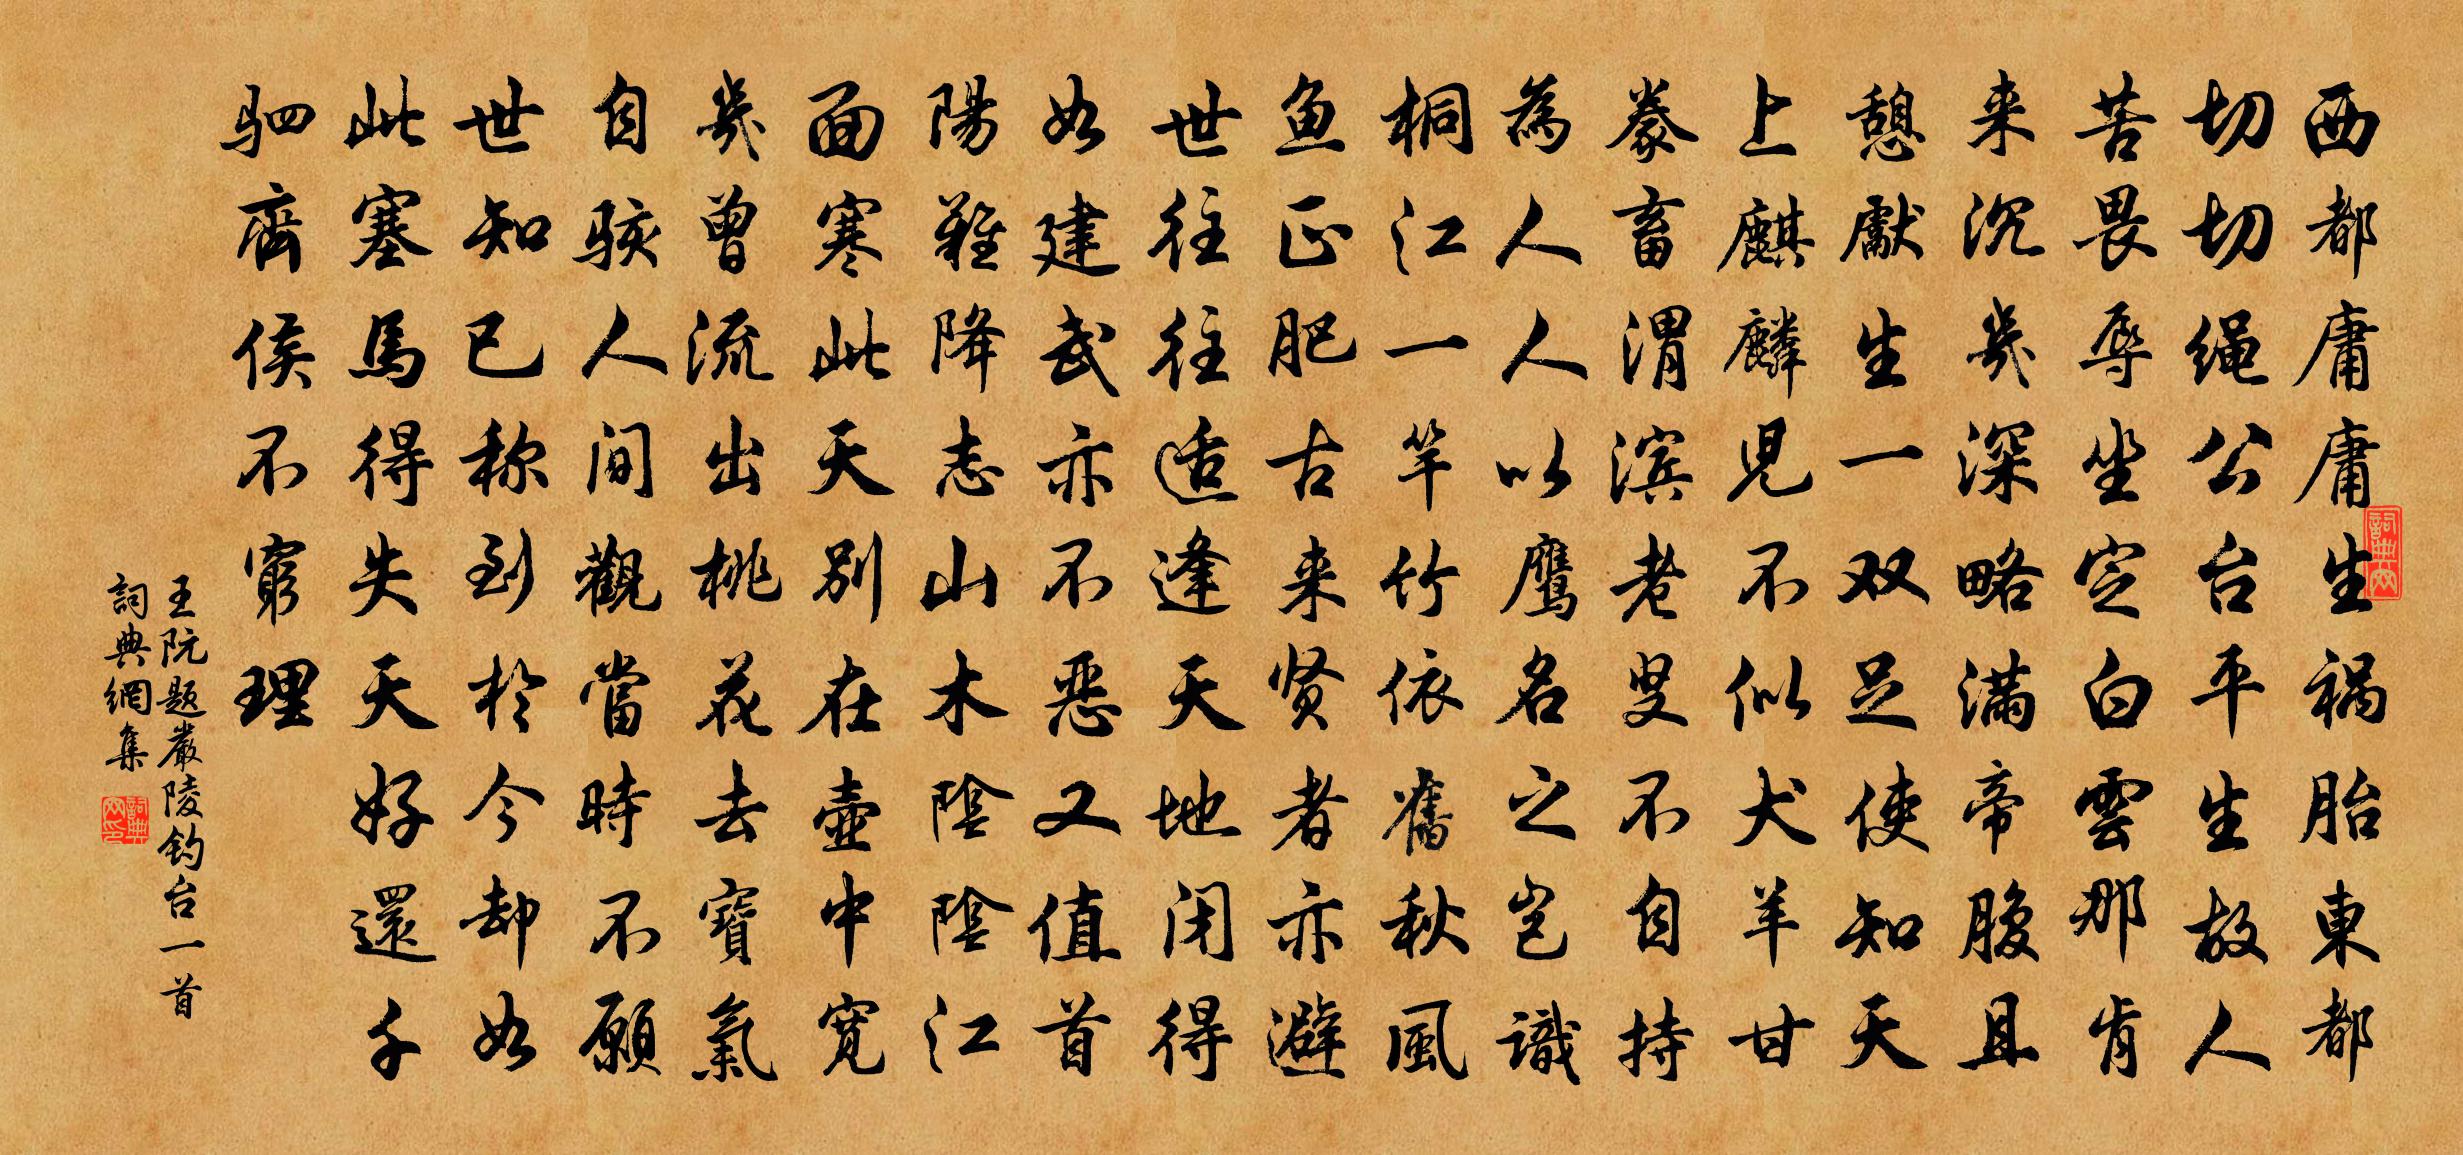 西都庸庸生祸胎東都
切切绳公台平生故人
苦畏辱坐定白雲那肯
来沉幾深略满帝腹且
憩獻生一双足使知天
上麒麟児不似犬羊甘
豢畜渭滨老叟不自持
為人人以鹰名之岂識
桐江一竿竹依舊秋風
魚正肥古来贤者亦避
世往往适逢天地闭得
如建武亦不恶又值首
陽難降志山木陰陰江
面寒此天别在壷中寛
幾曽流出桃花去寶氣
自駭人间觀當時不願
世知已称到於今却如
此塞馬得失天好還千
驷齊侯不窮理
王阮题嚴陵钓台一首
詞典網集
詞典网
詞典网印